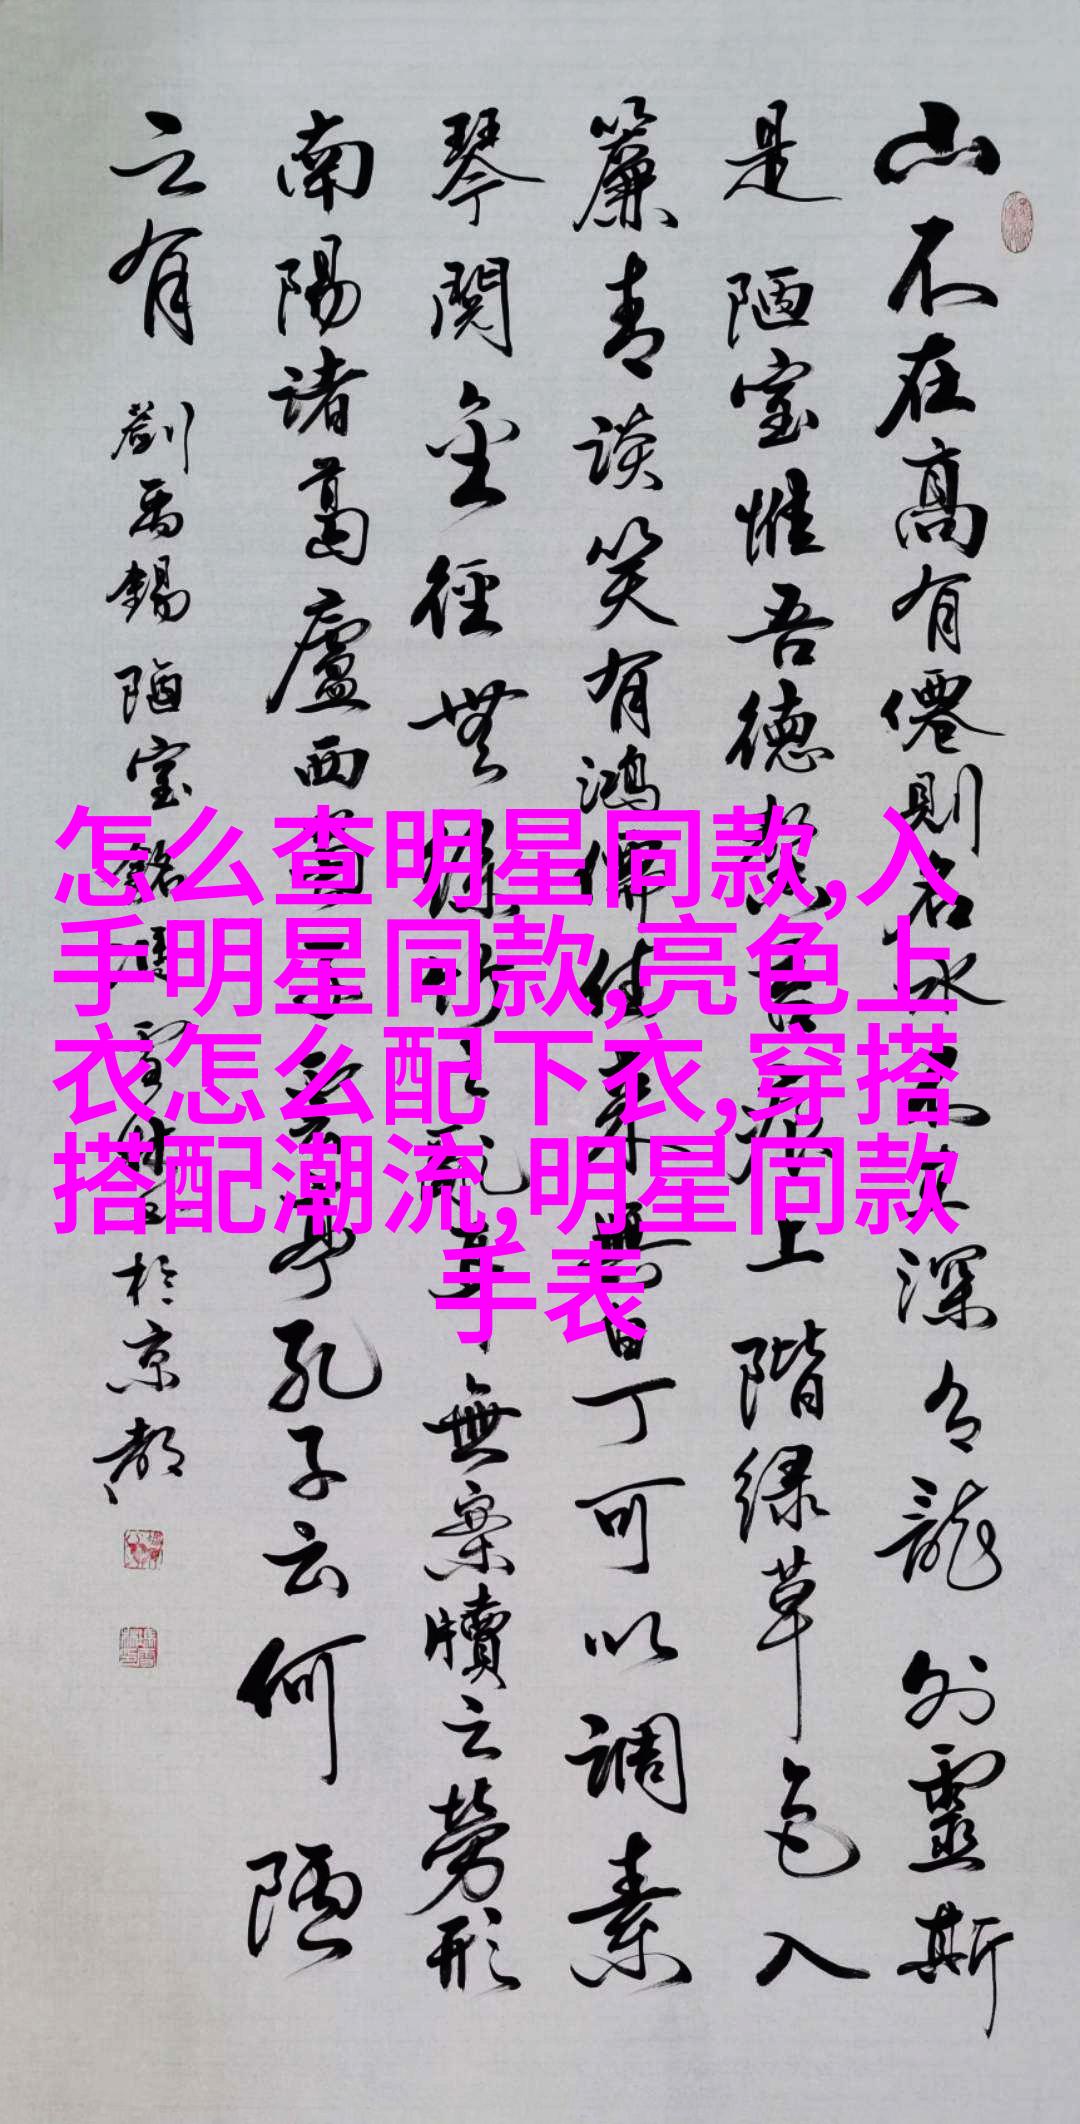 山不在高有僊則名水不在深有龍則靈斯
是陋室惟吾德馨苔痕上階绿草色入
簾青談笑有鴻儒往来無白丁可以調素
琴閱金徑無絲竹之亂耳無案牘之勞形
南陽諸葛廬西蜀子雲亭孔子云何陋
之有
劉禹錫陋室銘 於京都
怎么查明星同款,入
手明星同款,亮色上
衣怎么配下衣,穿搭
搭配潮流,明星同款
手表